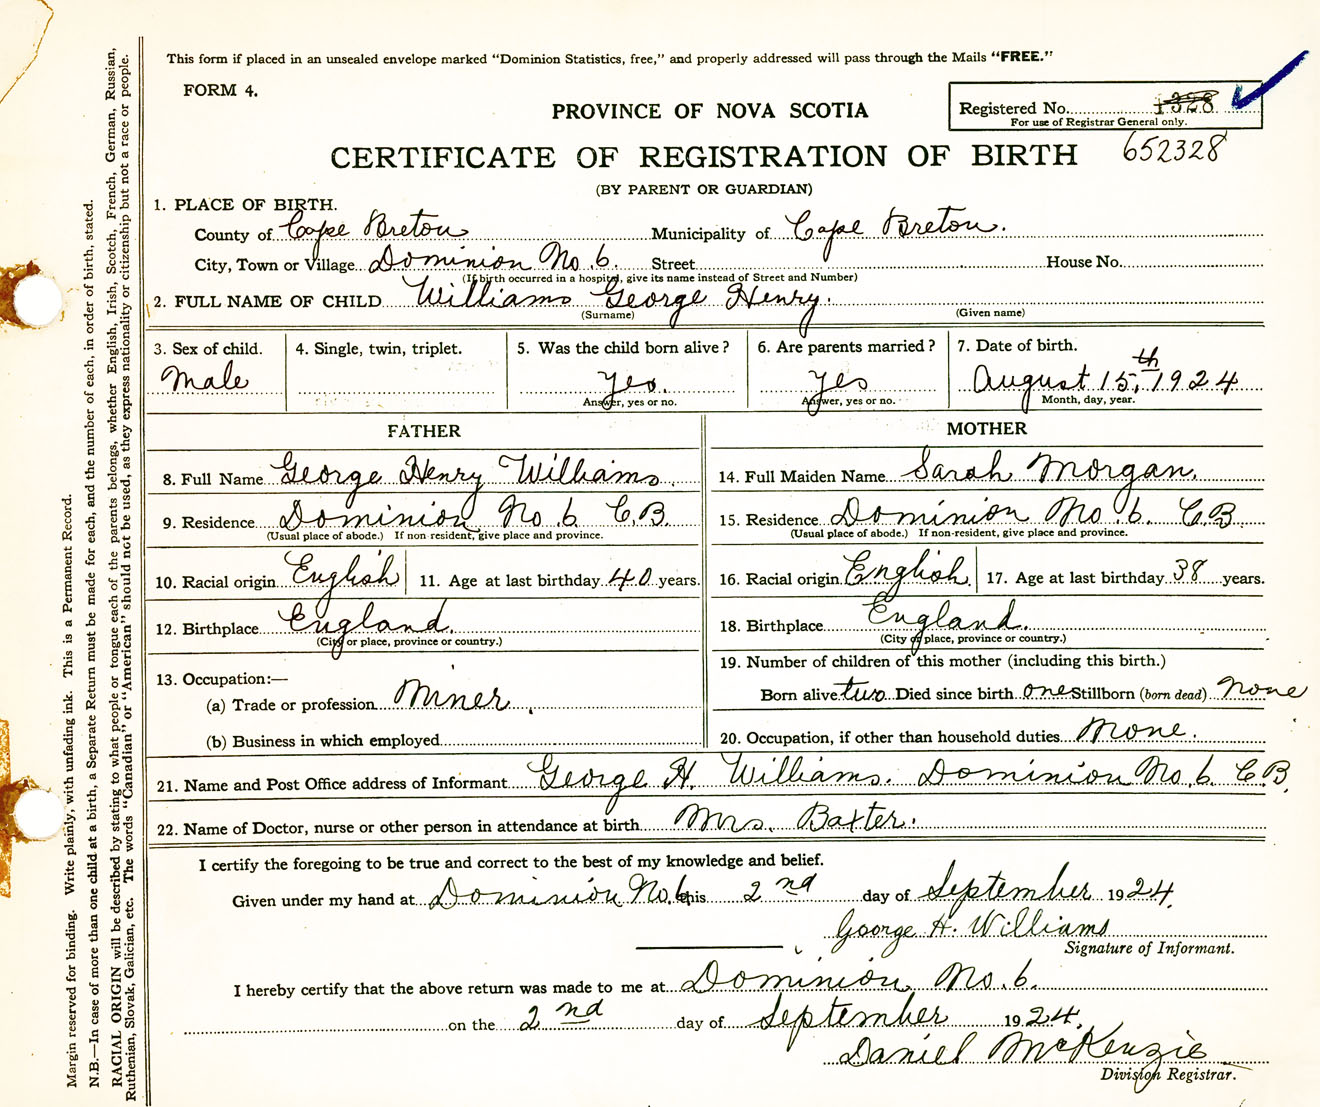 This form if placed in an unsealed envelope marked "Dominion Statistics, free," and properly addressed will pass through the Mails "FREE."
FORM 4.
PROVINCE OF NOVA SCOTIA
Registered No. 1328
For use of Registrar General only.
CERTIFICATE OF REGISTRATION OF BIRTH 652328
(BY PARENT OR GUARDIAN)
1. PLACE OF BIRTH.
County of Cape Breton Municipality of Cape Breton.
City, Town or Village Dominion No. 6. Street House No.
(If birth occurred in a hospital, give its name instead of Street and Number)
2. FULL NAME OF CHILD Williams George Henry.
(Surname) (Given name)
3. Sex of child. 4. Single, twin, triplet. 5. Was the child born alive? 6. Are parents married? 7. Date of birth.
Male Yes. Yes August 15th, 1924
Answer, yes or no. Answer, yes or no. Month, day, year.
FATHER MOTHER
8. Full Name George Henry Williams. 14. Full Maiden Name Sarah Morgan.
9. Residence Dominion No. 6 C.B. 15. Residence Dominion No. 6. C.B.
(Usual place of abode.) If non-resident, give place and province. (Usual place of abode.) If non-resident, give place and province.
10. Racial origin English 11. Age at last birthday 40 years. 16. Racial origin English. 17. Age at last birthday 38 years.
12. Birthplace England. 18. Birthplace England.
(City or place, province or country.) (City or place, province or country.)
13. Occupation:— 19. Number of children of this mother (including this birth.)
(a) Trade or profession Miner. Born alive two Died since birth one Stillborn (born dead) None
(b) Business in which employed 20. Occupation, if other than household duties None.
21. Name and Post Office address of Informant George H. Williams. Dominion No. 6 C.B.
22. Name of Doctor, nurse or other person in attendance at birth Mrs. Baxter.
I certify the foregoing to be true and correct to the best of my knowledge and belief.
Given under my hand at Dominion No. 6 this 2nd day of September 1924.
George H. Williams
Signature of Informant.
I hereby certify that the above return was made to me at Dominion No. 6.
on the 2nd day of September 1924.
Daniel McKenzie
Division Registrar.
Margin reserved for binding. Write plainly, with unfading ink. This is a Permanent Record.
N.B.—In case of more than one child at a birth, a Separate Return must be made for each, and the number of each, in order of birth, stated.
RACIAL ORIGIN will be described by stating to what people or tongue each of the parents belongs, whether English, Irish, Scotch, French, German, Russian,
Ruthenian, Slovak, Galician, etc. The words "Canadian" or "American" should not be used, as they express nationality or citizenship but not a race or people.